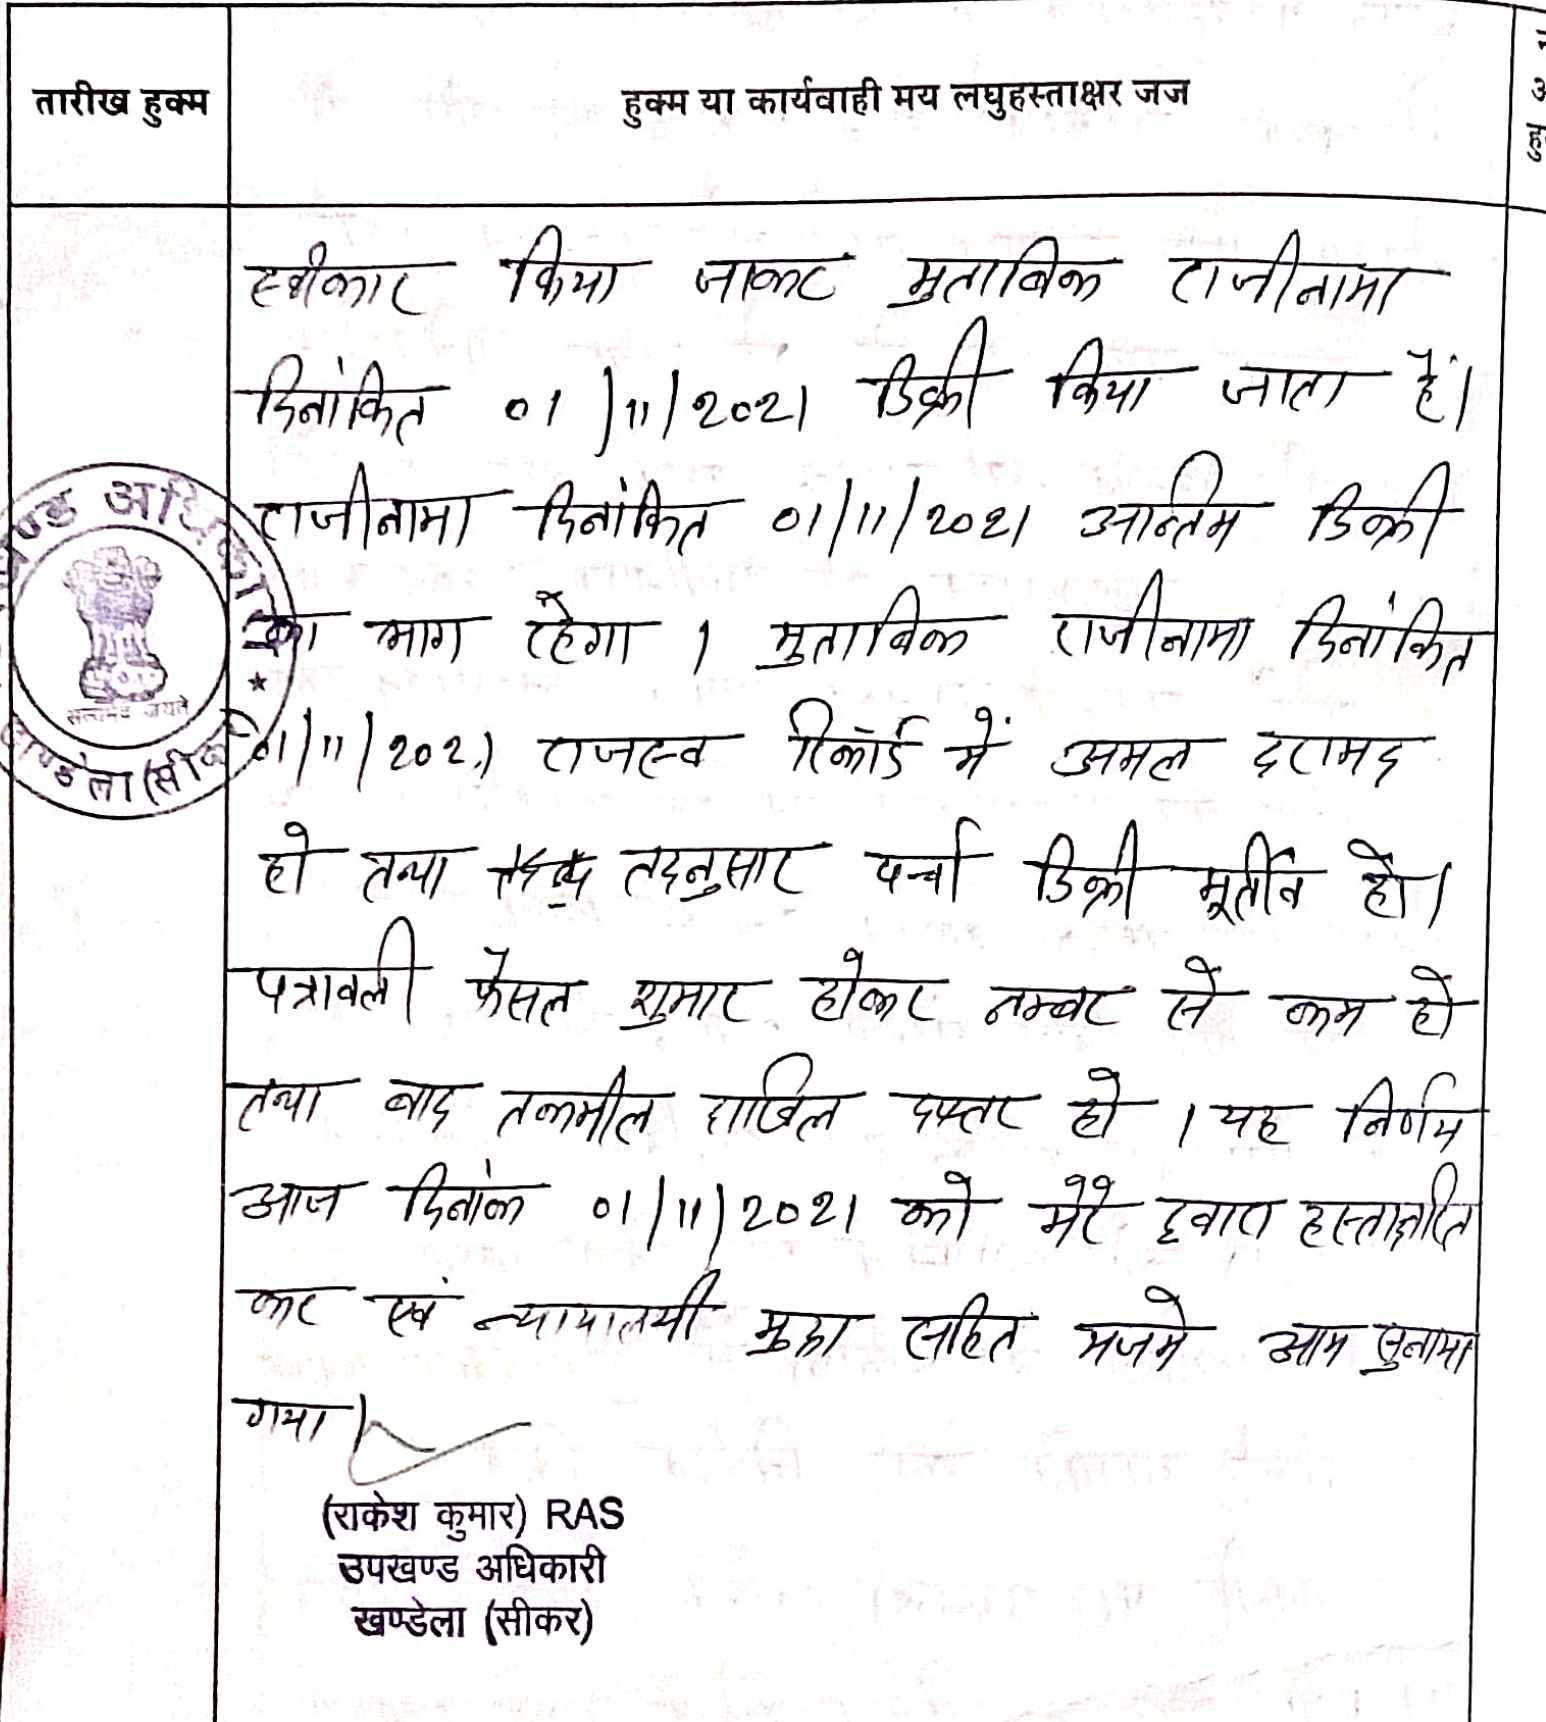 तारीख हुक्म
हुक्म या कार्यवाही मय लघुहस्ताक्षर जज
स्वीकार किया जाकर मुताबिक राजीनामा
दिनांकित 01/11/2021 डिक्री किया जाता हैं।
राजीनामा दिनांकित 01/11/2021 अन्तिम डिक्री
का भाग रहेगा । मुताबिक राजीनामा दिनांकित
01/11/2021 राजस्व रिकॉर्ड में अमल दरामद
हो तथा तदनुसार पर्चा डिक्री मूर्तीब हो।
पत्रावली फैसल शुमार होकर नम्बर से कम हो
तथा बाद तकमील दाखिल दफ्तर हो । यह निर्णय
आज दिनांक 01/11/2021 को मेरे द्वारा हस्ताक्षरित
कर एवं न्यायालयी मुद्रा सहित मजमे आम सुनाया
गया।
(राकेश कुमार) RAS
उपखण्ड अधिकारी
खण्डेला (सीकर)
सत्यमेव जयते